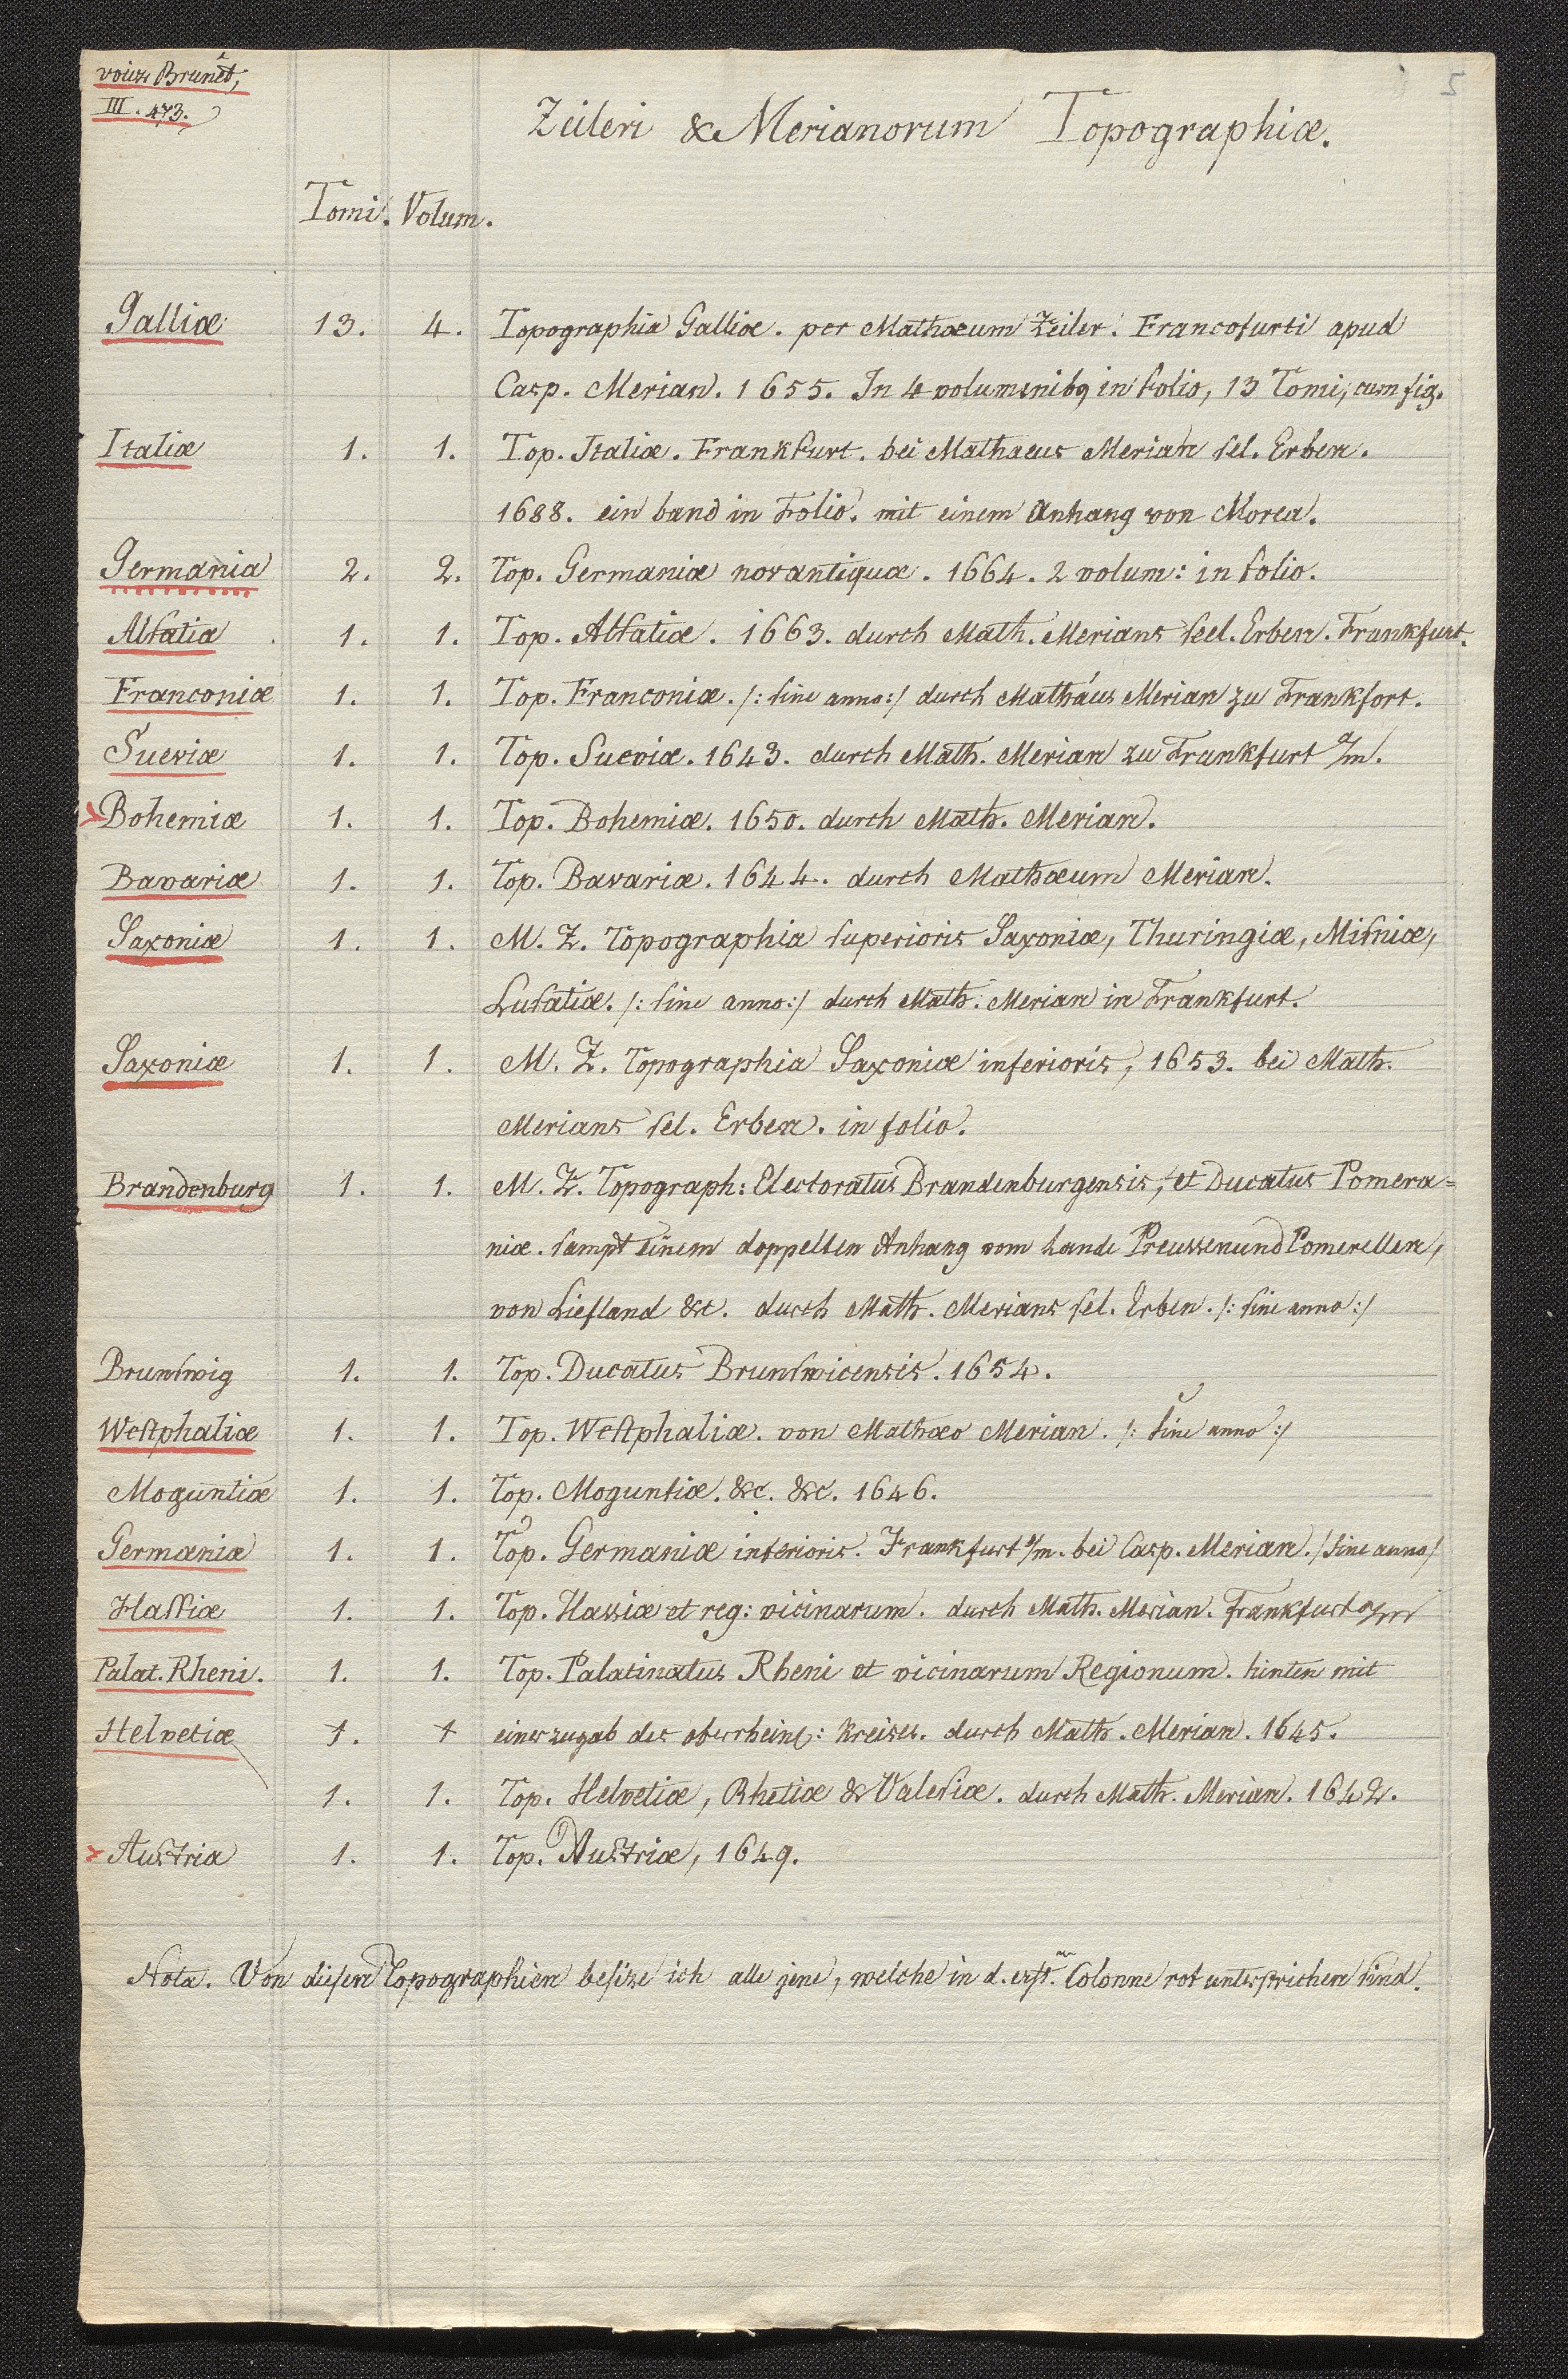 voiez Brunet,
III. 473.
5
Zeileri & Merianorum Topographiæ.
Tomi. Volum.
Galliæ 13. 4. Topographia Galliæ. per Mathæum Zeiler. Francofurti apud
Casp. Merian. 1655. In 4 voluminibq in folio, 13 Tomi, cum fig.
Italiæ 1. 1. Top. Italiæ. Frankfurt. bei Mathaeus Merian sel. Erben.
1688. ein band in Folio. mit einem Anhang von Morea.
Germania 2. 2. Top. Germaniæ novantiquæ. 1664. 2 volum: in folio.
Alsatia 1. 1. Top. Alsatiæ. 1663. durch Math. Merians seel. Erben. Frankfurt.
Franconiæ 1. 1. Top. Franconiæ. /: sine anno :/ durch Mathäus Merian zu Frankfort.
Sueviæ 1. 1. Top. Sueviæ. 1643. durch Math. Merian zu Frankfurt a/m.
Bohemiæ 1. 1. Top. Bohemiæ. 1650. durch Math. Merian.
Bavariæ 1. 1. Top. Bavariæ. 1644. durch Mathæum Merian.
Saxoniæ 1. 1. M. Z. Topographia superioris Saxoniæ, Thuringiæ, Misniæ,
Lusatiæ. /: sine anno :/ durch Math. Merian in Frankfurt.
Saxoniæ 1. 1. M. Z. Topographia Saxoniæ inferioris, 1653. bei Math.
Merians sel. Erben. in folio.
Brandenburg 1. 1. M. Z. Topograph: Electoratus Brandenburgensis, et Ducatus Pomera=
niæ. sampt einem doppelten Anhang vom Lande Preussen und Pomerellen,
von Liefland &c. durch Math. Merians sel. Erben. /: sine anno :/
Brunswig 1. 1. Top. Ducatus Brunswicensis. 1654.
Westphaliæ 1. 1. Top. Westphaliæ. von Mathæo Merian. /: sine anno :/
Moguntiæ 1. 1. Top. Moguntiæ. &c. &c. 1646.
Germaniæ 1. 1. Top. Germaniæ inferioris. Frankfurt a/m. bei Casp. Merian. / sine anno /
Hassiæ 1. 1. Top. Hassiæ et reg: vicinarum. durch Math. Merian. Frankfurt a/m
Palat. Rheni. 1. 1. Top. Palatinatus Rheni et vicinarum Regionum. hinten mit
Helvetiæ 1. 1 einer zugab des oberrheins: Kreises. durch Math. Merian. 1645.
1. 1. Top. Helvetiæ, Rhetiæ & Valesiæ. durch Math. Merian. 1642.
Austria 1. 1. Top. Austriæ, 1649.
Nota. Von diesen Topographien besize ich alle jene, welche in d. erst.en Colonne rot unterstrichen sind.